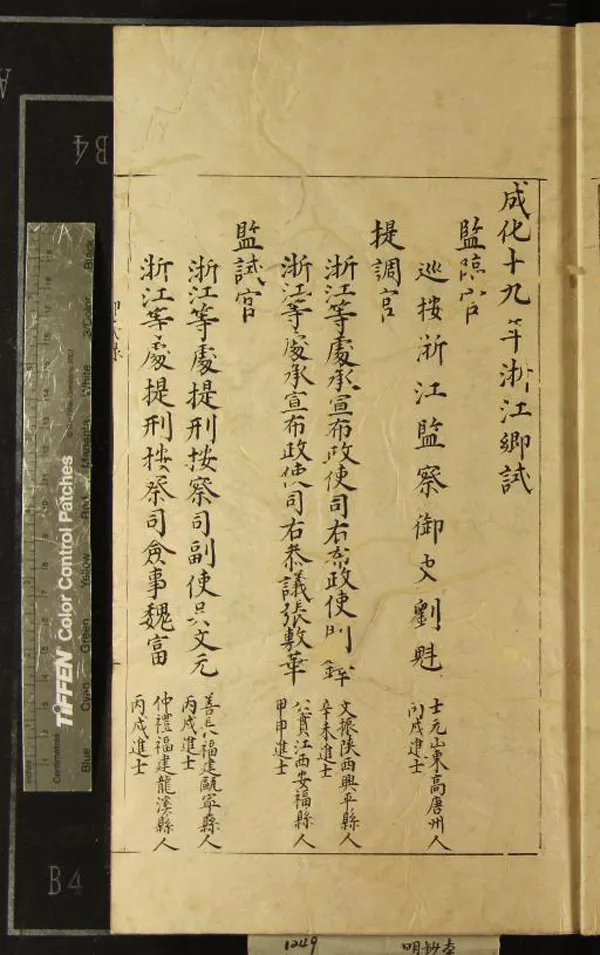 成化十九年浙江鄉試
監臨官
巡按浙江監察御史劉魁 士元山東高唐州人
丙戌進士
提調官
浙江等處承宣布政使司右布政使 文振陝西興平縣人
辛未進士
浙江等處承宣布政使司右叅議張敷華 公實江西安福縣人
甲申進士
監試官
浙江等處提刑按察司副使吳文元 善長福建甌寧縣人
丙戌進士
浙江等處提刑按察司僉事魏富 仲禮福建龍溪縣人
丙戌進士
TIFFEN Color Control Patches
Centimetres
Inches
Blue
Cyan
Green
Yellow
Red
Magenta
White
3/Color
Black
B4
B4
A
1249
明鈔本